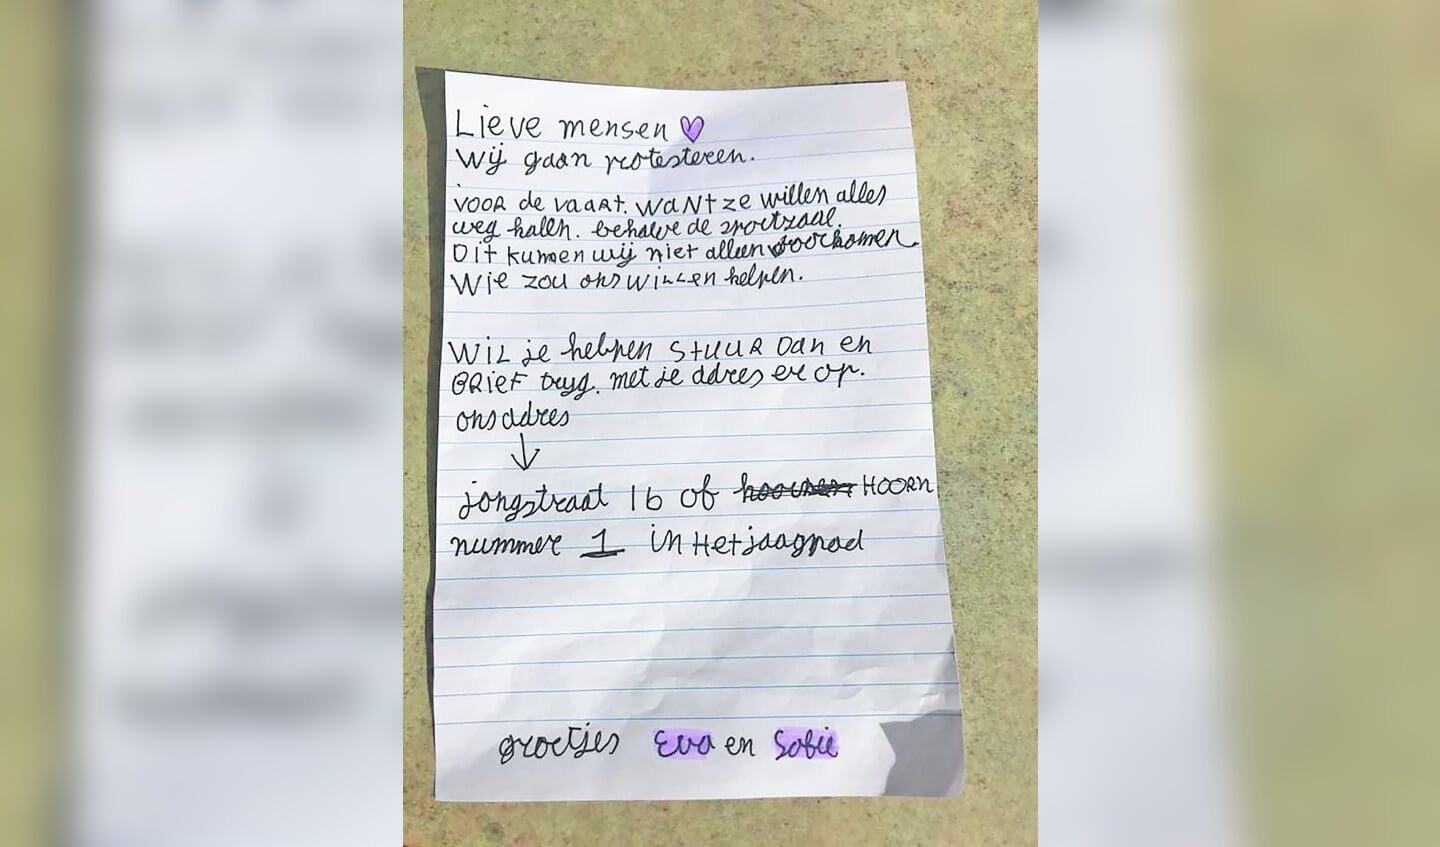 Lieve mensen
wij gaan protesteren.
voor de vaart. want ze willen alles
weg halen. behalve de sportzaal.
Dit kunen wij niet alleen voorkomen.
Wie zou ons willen helpen.
Wil je helpen stuur dan en
Brief tryg. met je adres er op.
ons adres
jongstraat 16 of HOORN
nummer 1 in Het jaagpad
groetjes Eva en Sofie